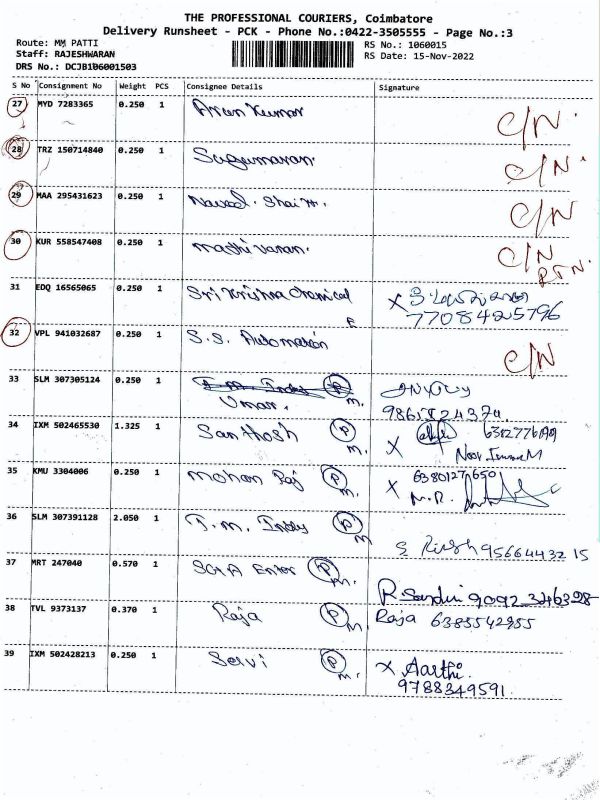 THE PROFESSIONAL COURIERS, Coimbatore
Delivery Runsheet - PCK - Phone No.:0422-3505555 - Page No.:3
Route: MM PATTI
Staff: RAJESHWARAN
DRS No.: DCJB106001503
RS No.: 1060015
RS Date: 15-Nov-2022
S No Consignment No Weight PCS Consignee Details Signature
27 MYD 7283365 0.250 1 Arun Kumar C/N.
28 TRZ 150714840 0.250 1 Sugumaran. C/N.
29 MAA 295431623 0.250 1 C/N
30 KUR 558547408 0.250 1 mathivanan. C/N
RTN.
31 EDQ 16565065 0.250 1 Sri Krishna Chemical X
7708425796
32 VPL 941032687 0.250 1 S.S. Automation C/N
33 SLM 307305124 0.250 1 T.M. Indy P
Umar. m.
34 IXM 502465530 1.325 1 Santhosh P m. X
35 KMU 3304006 0.250 1 mohan Raj P m. X 6380127650
M.R.
36 SLM 307391128 2.050 1 T.M. Indy P m
9566443215
37 MRT 247040 0.570 1 SGA Enter P m.
R. 9092346328
38 TVL 9373137 0.370 1 Raja P m. Raja 6385542955
39 IXM 502428213 0.250 1 Selvi P m. X Aarthi.
9788349591.